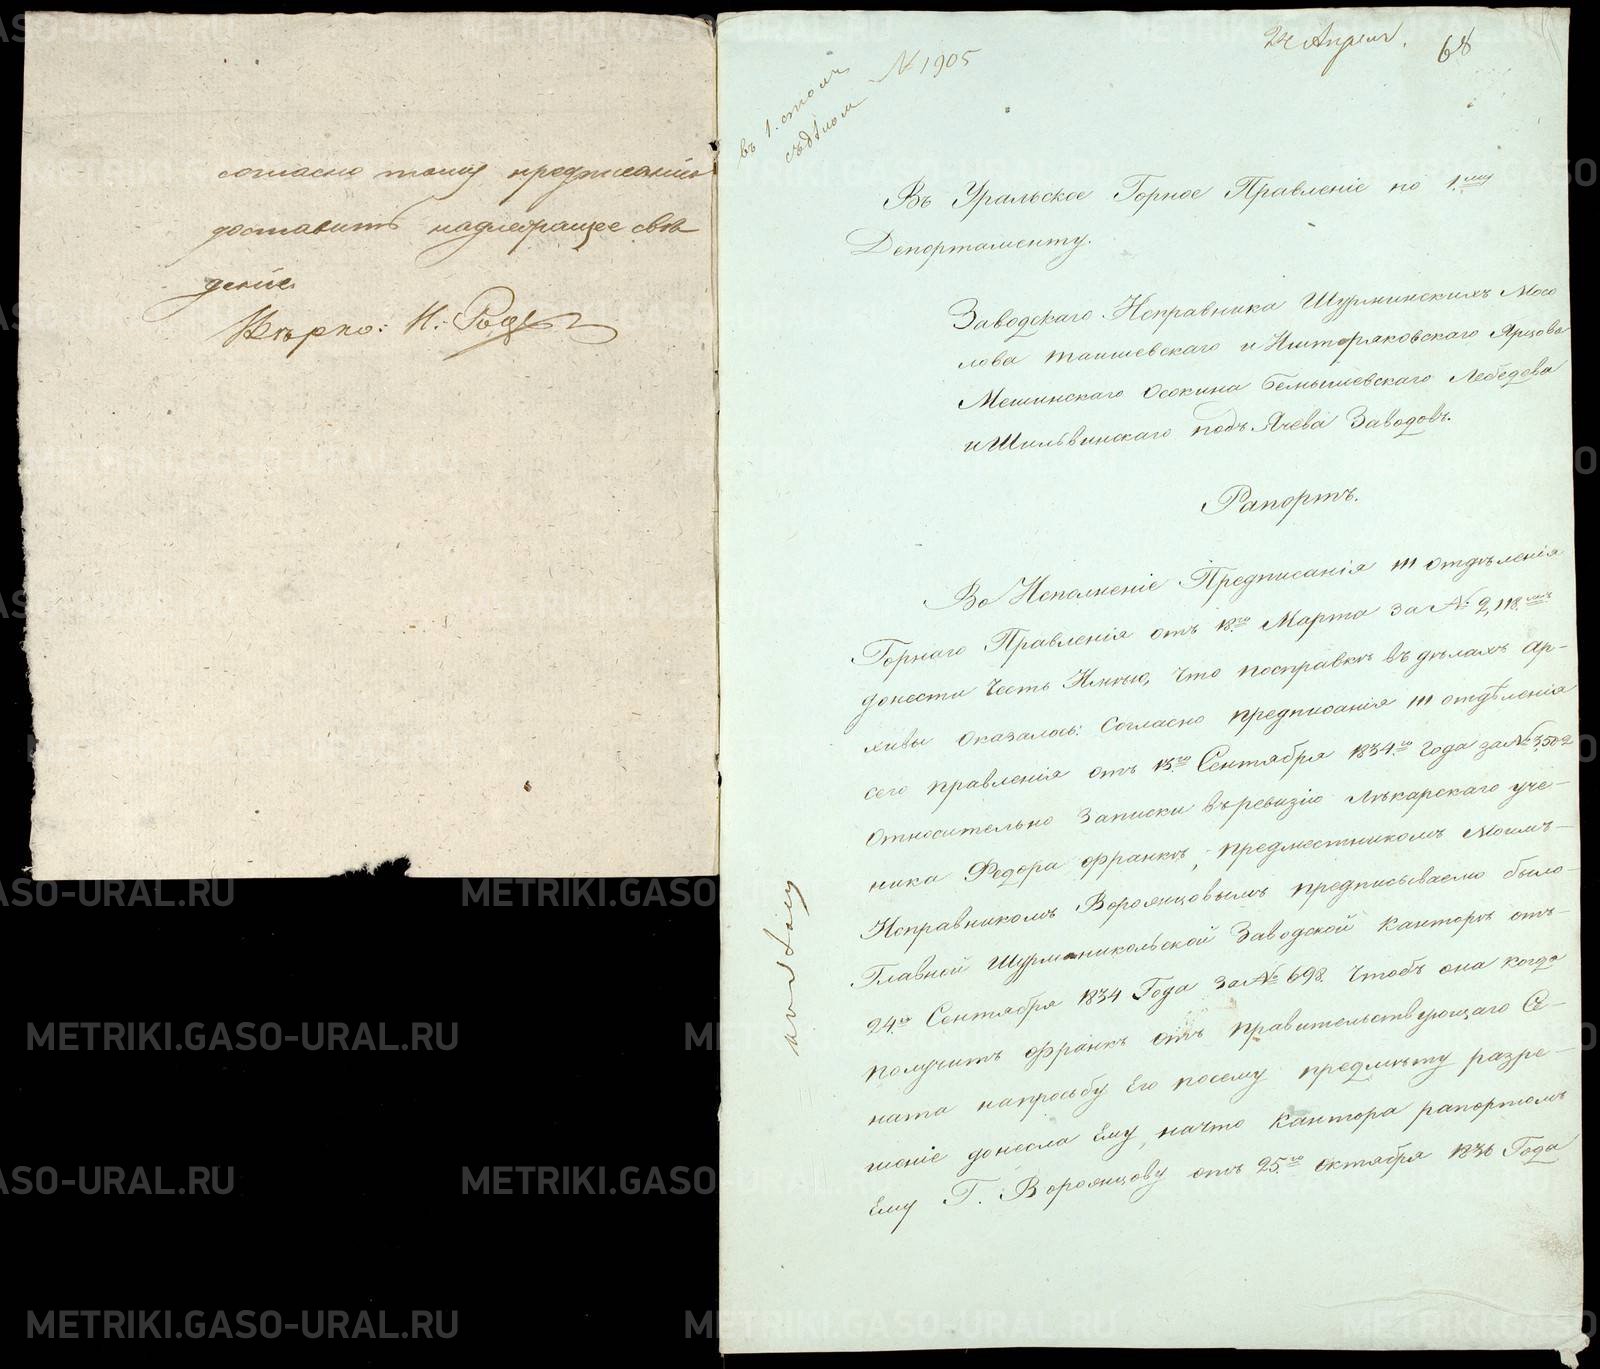 согласно тому предписанію
доставить надлежащее свѣ
деніе.
Вѣрно:
24 Апреля. 68
№ 1905
въ 1. столъ
съ дѣлом
Въ Уральское Горное Правленіе по 1.му
Депортаменту.
Заводскаго Исправника Шурминскихъ Мосо
лова Таишевскаго и Иштеряковскаго Ярцова
Мешинскаго Осокина Бемышевскаго Лебедева
и Шильвинскаго подъ Ячева Заводовъ.
Рапортъ.
Во Исполненіе Предписанія III отдѣленія
Горнаго Правленія отъ 18.го Марта за № 2,118.мъ
донести Честь Имѣю, Что посправкѣ въ дѣлахъ ар-
хивы Оказалось: Согласно предписанія III отдѣленія
сего правленія отъ 13.го Сентября 1834.го Года за № 3,502
Относительно Записки въ ревизію Лѣкарскаго уче-
ника Федора Франкъ, предместникомъ Моимъ-
Исправникомъ Воронцовымъ предписываемо было-
Главной Шурманикольской Заводской Канторѣ отъ-
24.го Сентября 1834 Года За № 698. Чтобъ она когда
получитъ Франкъ отъ правительствующаго Се-
ната напросьбу Его посему предмѣту разре-
шеніе донесла Ему, начто Кантора рапортомъ
Ему Г. Воронцову отъ 25.го Октября 1836 Года